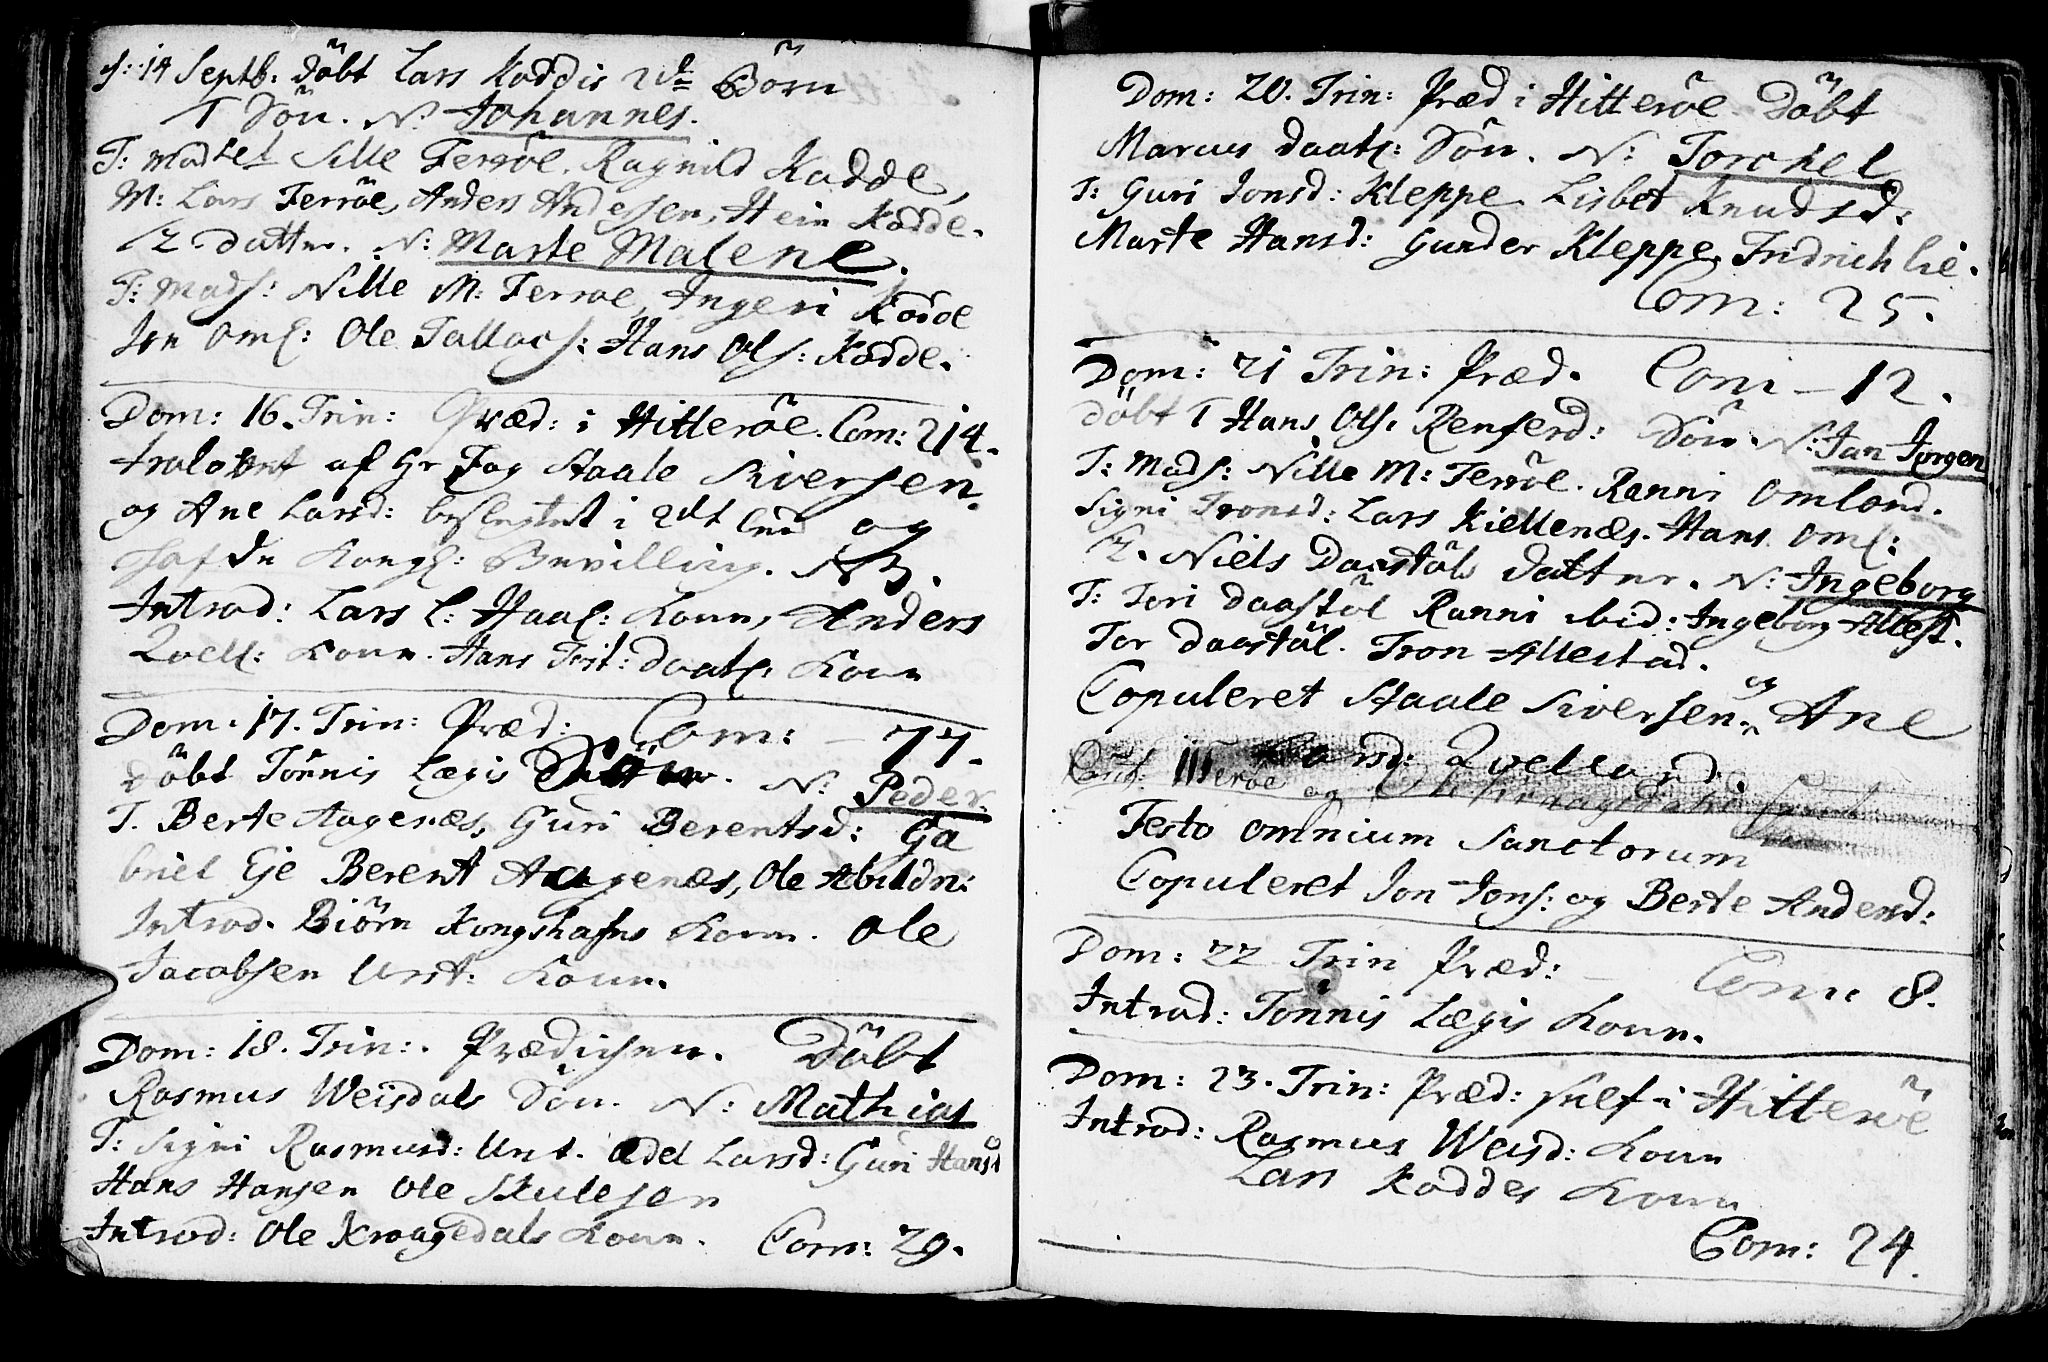 d: 14 Septb. döbt Lars Kaddis 2de Börn
1 Sön. N. Johannes.
T: Mad Sille Ferröe, Ragnild Kadde,
M: Lars Ferröe, Anders Andersen, Hein Kadde.
2 datter. N: Marte Malene.
T: Mads: Nille M: Ferröe, Ingeri Kadde
Jon Oml: Ole Tallacs: Hans Ols: Kadde.
Dom: 16. Trin: Præd: i Hitteröe. Com: 214.
trolovet af hr Fog Staale Siversen
og Ane Larsd: beslegtet i 2det led og
hafde Kongl: Bevilling. NB.
Introd: Lars L: Haal: Koun, Anders
Qvell: Koun. Hans Tost: Daatl: Koun
Dom: 17. Trin: Præd: Com: - 77.
döbt Tönnis Lægis N: Peder.
T. Berte Aagenæs, Guri Berentsd: Ga
briel Eje Berent Aagenæs, Ole Abildn:
Introd. Biörn Kongshafns Koun. Ole
Jacobsen Urst: Koun.
Dom: 18. Trin:. Prædichen. Döbt
Rasmus Weisdals Sön. N: Mathias
T: Signi Rasmusd: Urst. Ædel Larsd: Guri Hansd
Hans Hansen Ole Skulesen
Introd: Ole Kraagedals Koun. Com: 29.
Dom: 20. Trin: Præd i Hitteröe Döbt
Marcus Daatl: Sön. N: Torchel
T: Guri Jonsd: Kleppe Lisbet Knudsd:
Marte Hansd: Gunder Kleppe, Fridrich Lie.
Com: 25.
Dom: 21 Trin: Præd. Com - 12.
döbt 1 Hans Ols. Rensferd: Sön. N: Jan Jørgen
T: Mads: Nille M: Ferröe. Ranni Omland.
Signi Tronsd: Lars Kiellenæs. Hans Oml:
2. Niels Daastöls datter. N: Ingeborg
T: Tori Daastöl Ranni ibid: Ingeborg Allest.
Tor Daastöl. Tron Allestad.
Copuleret Staale Siversen og Ane
Larsd: Qvelland.
Festo omnium Sanctorum
Copuleret Jon Jons: og Berte Andersd:
Dom: 22 Trin Præd: - Com: 8.
Introd: Tönnis Lægis Koun.
Dom: 23. Trin: Præd: self i Hitteröe
Introd: Rasmus Weisd: Koun
Lars Kaddes Koun
Com: 24.